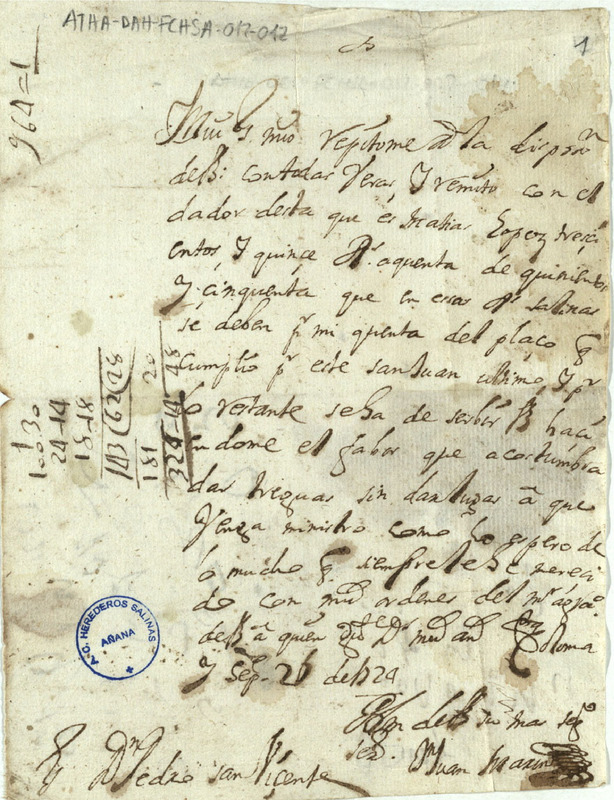 ATHA-DAH-FCHSA-012-012
1
964=1
Muy S. mio repitome a la dispon
de Vd. con todas Veras, Y remito con el
dador desta que es Mathias Lopez tresci
entos, Y quince Rs. a quenta de quinientos
Y cinquenta que en essas Rs. salinas
se deben pr mi quenta del plaço q
cumplio pr este san Juan ultimo, Y pr
lo restante se ha de serbir Vd haci
endome el fabor que acostumbra
dar treguas sin dar lugar a que
Venga ministro como lo espero de
lo mucho q siempre le he mereci
do con mds ordenes del mr agrado
de Vd a quien gde Ds ms as
Coloma
Y Sep.
de Vd su mas segº
serr. Juan Marin
Dn Pedro san Viçente
10030
24-14
18-18
143 62 28
181 20
324-14 48
A.C. HEREDEROS SALINAS
AÑANA